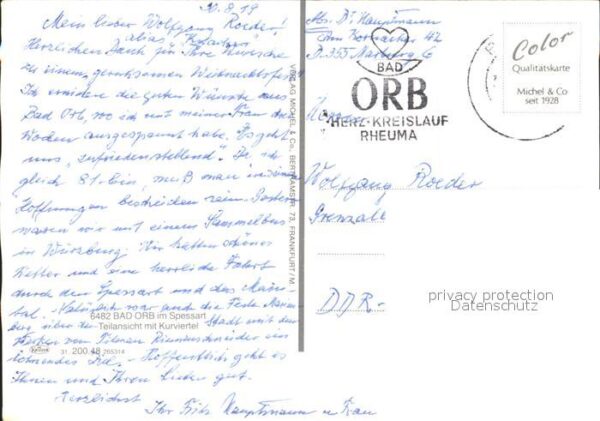 Mein lieber Wolfgang Roeder!
Herzlichen Dank für Ihre Wünsche
zu einem geruhsamen Weihnachtsfest!
Ich erwidere die guten Wünsche aus
Bad Orb, wo ich mit meiner Frau
Wochen ausgespannt habe. Es geht
uns „zufriedenstellend". Da ich
gleich 81 bin, muß man in
Hoffnungen bescheiden sein. Gestern
waren wir mit einem Sammelbus
in Würzburg. Wir hatten schönes
Wetter und eine herrliche Fahrt
durch den Spessart und das Main-
tal. war auch die Feste
berg über der Stadt mit den
Werken von Tilman Riemenschneider ein
lohnendes Ziel. Hoffentlich geht es
Ihnen und Ihren Lieben gut.
Herzlichst
Ihr Fritz Hauptmann u Frau
6482 BAD ORB im Spessart
Teilansicht mit Kurviertel
31 200.48 265314
VERLAG MICHEL & CO., BERTRAMSTR. 73, FRANKFURT/M. 1
Abs. Dr Hauptmann
D. 355 Marburg 6
BAD
ORB
HERZ-KREISLAUF
RHEUMA
Color
Qualitätskarte
Michel & Co
seit 1928
Herrn
Wolfgang Roeder
DDR-
privacy protection
Datenschutz